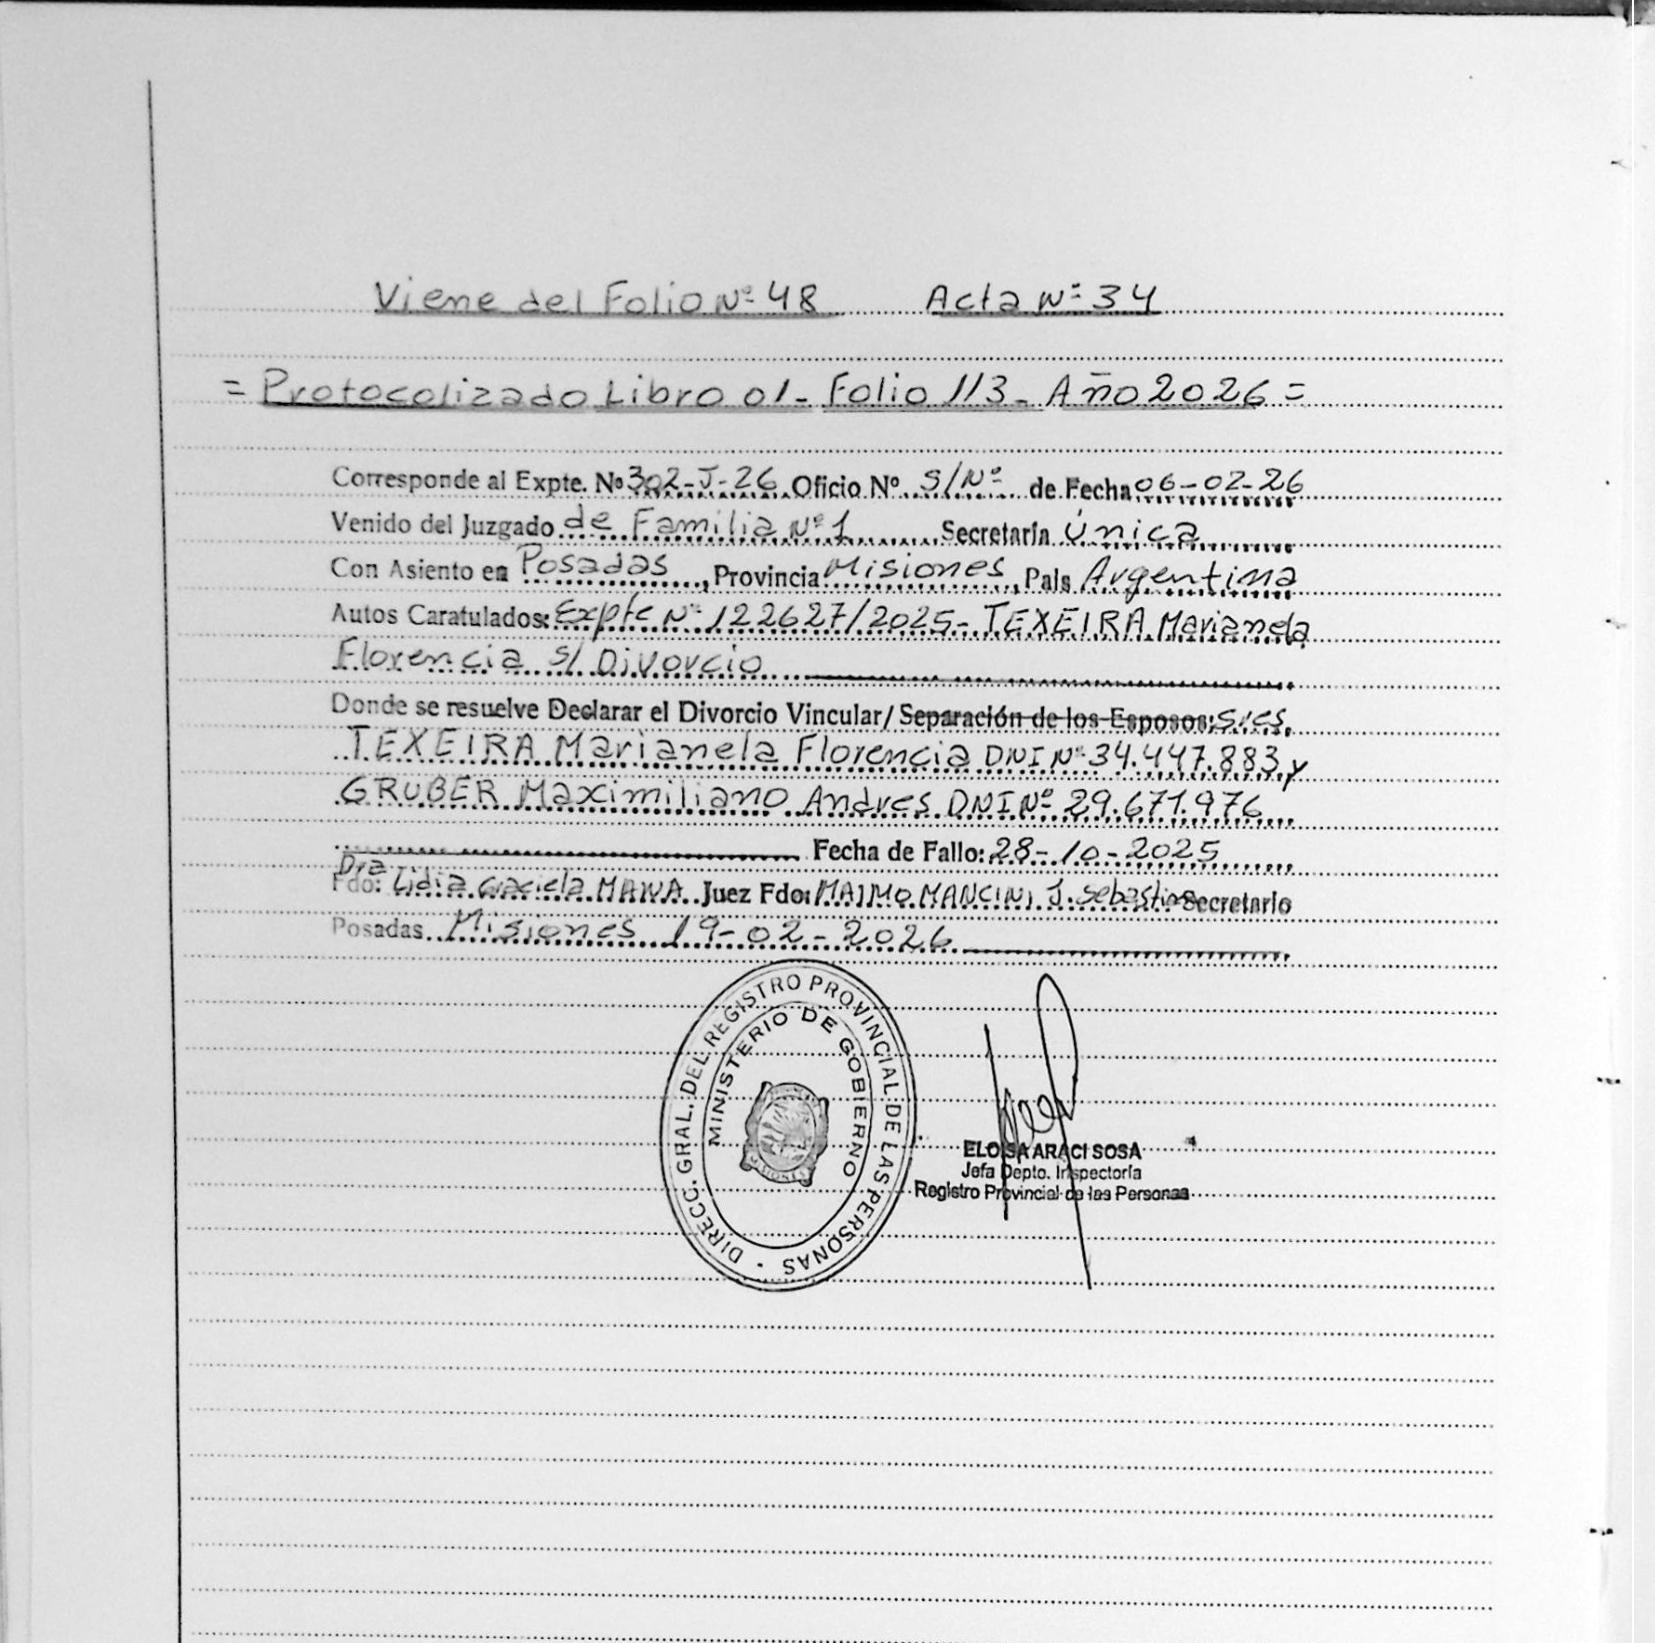 Viene del Folio Nº 48 Acta Nº 34
= Protocolizado Libro 01 - Folio 113 - Año 2026 =
Corresponde al Expte. Nº 302-J-26 Oficio Nº S/Nº de Fecha 06-02-26
Venido del Juzgado de Familia Nº 1 Secretaría Única
Con Asiento en Posadas, Provincia Misiones, País Argentina
Autos Caratulados: Expte Nº 122627/2025 - TEXEIRA Marianela
Florencia s/ Divorcio
Donde se resuelve Declarar el Divorcio Vincular/ Separación de los Esposos: Sres
TEXEIRA Marianela Florencia DNI Nº 34.447.883 y
GRUBER Maximiliano Andres DNI Nº 29.671.976
Fecha de Fallo: 28-10-2025
Dra
Fdo: Lidia Graciela Juez Fdo: MAIMO MANCINI J. Sebastian Secretario
Posadas Misiones 19-02-2026
DIRECC. GRAL. DEL REGISTRO PROVINCIAL DE LAS PERSONAS
MINISTERIO DE GOBIERNO
MISIONES
ELOISA ARACI SOSA
Jefa Depto. Inspectoría
Registro Provincial de las Personas